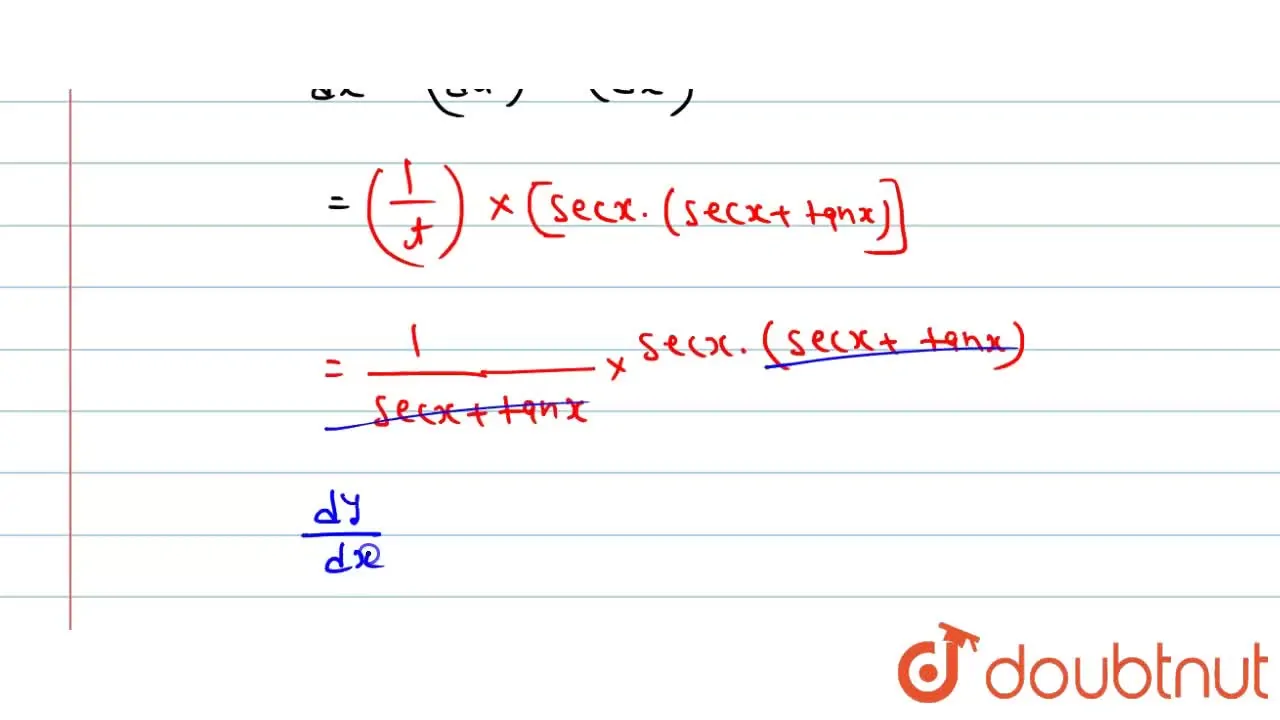 = (1/t) × [secx. (secx + tanx)]
= 1/(secx + tanx) × secx. (secx + tanx)
dy/dx
doubtnut